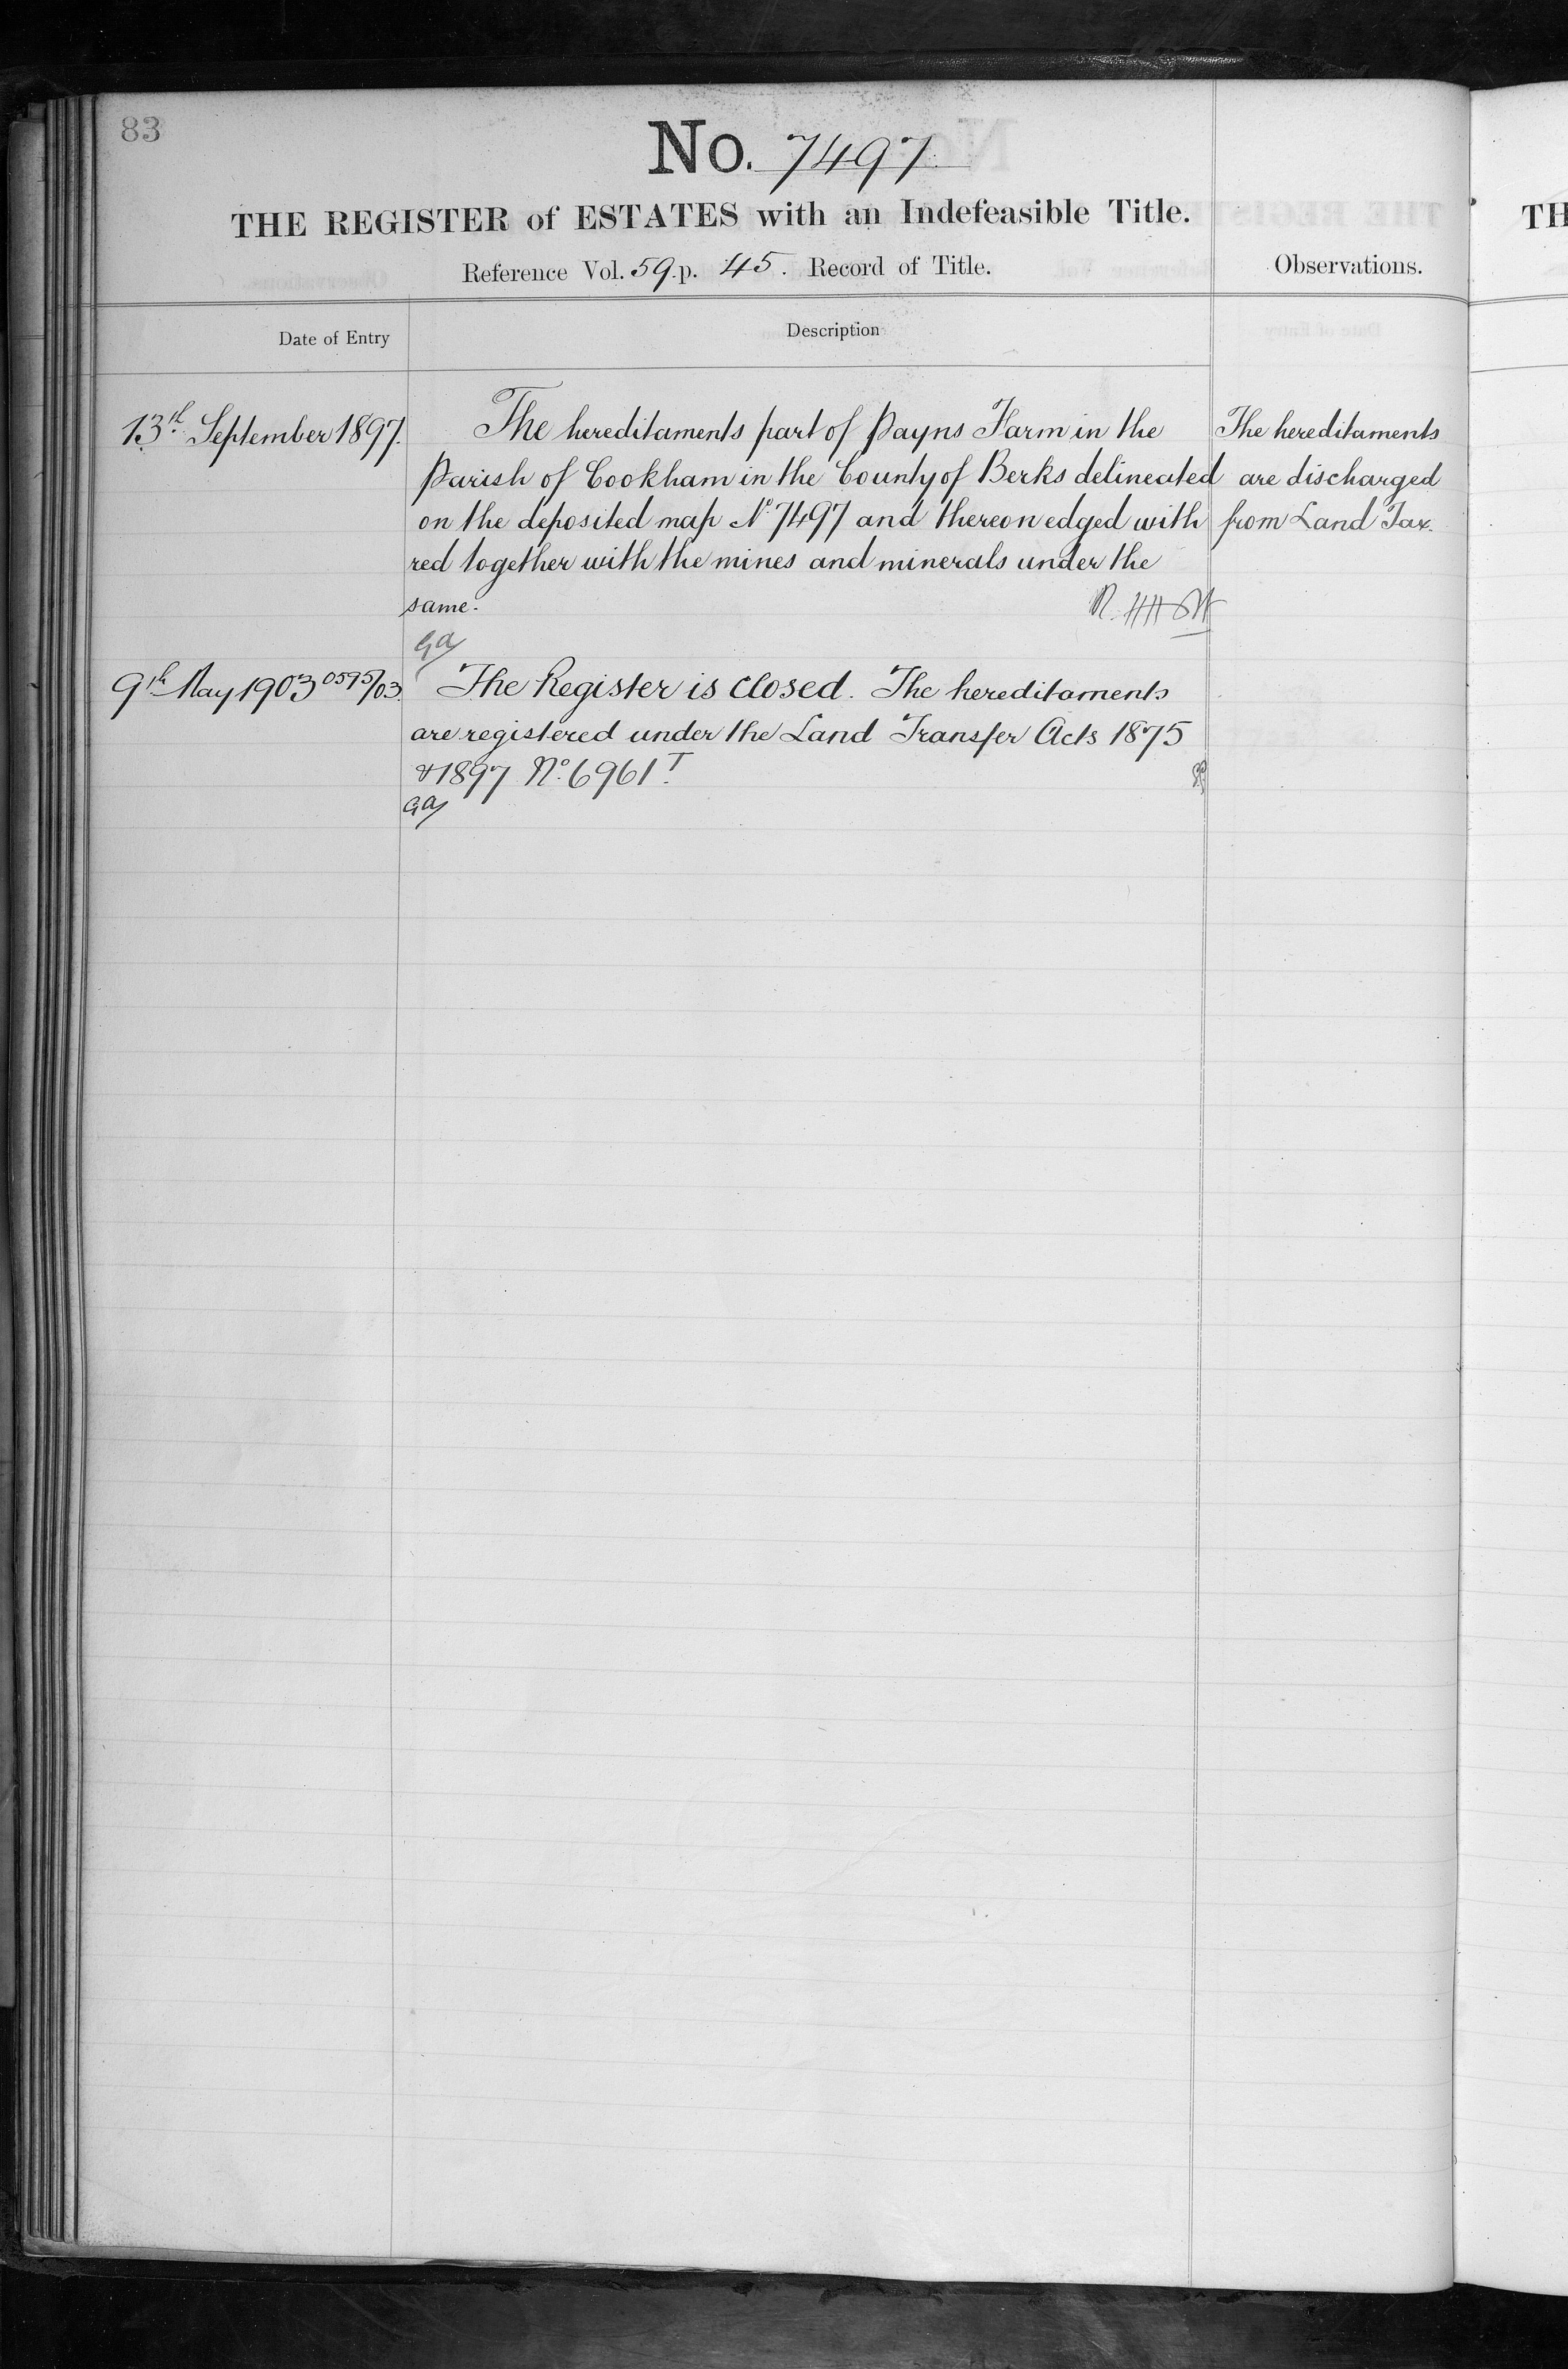 83
No. 7497.
THE REGISTER of ESTATES with an Indefeasible Title.
Reference Vol. 59. p. 45. Record of Title.
Observations.
Date of Entry
Description
13th September 1897.
The hereditaments part of Payns Farm in the
Parish of Cookham in the County of Berks delineated
on the deposited map No. 7497 and thereon edged with
red together with the mines and minerals under the
same.
The hereditaments
are discharged
from Land Tax.
9th May 1903 0595/03.
The Register is closed. The hereditaments
are registered under the Land Transfer Acts 1875
& 1897 No. 6961T.
TH